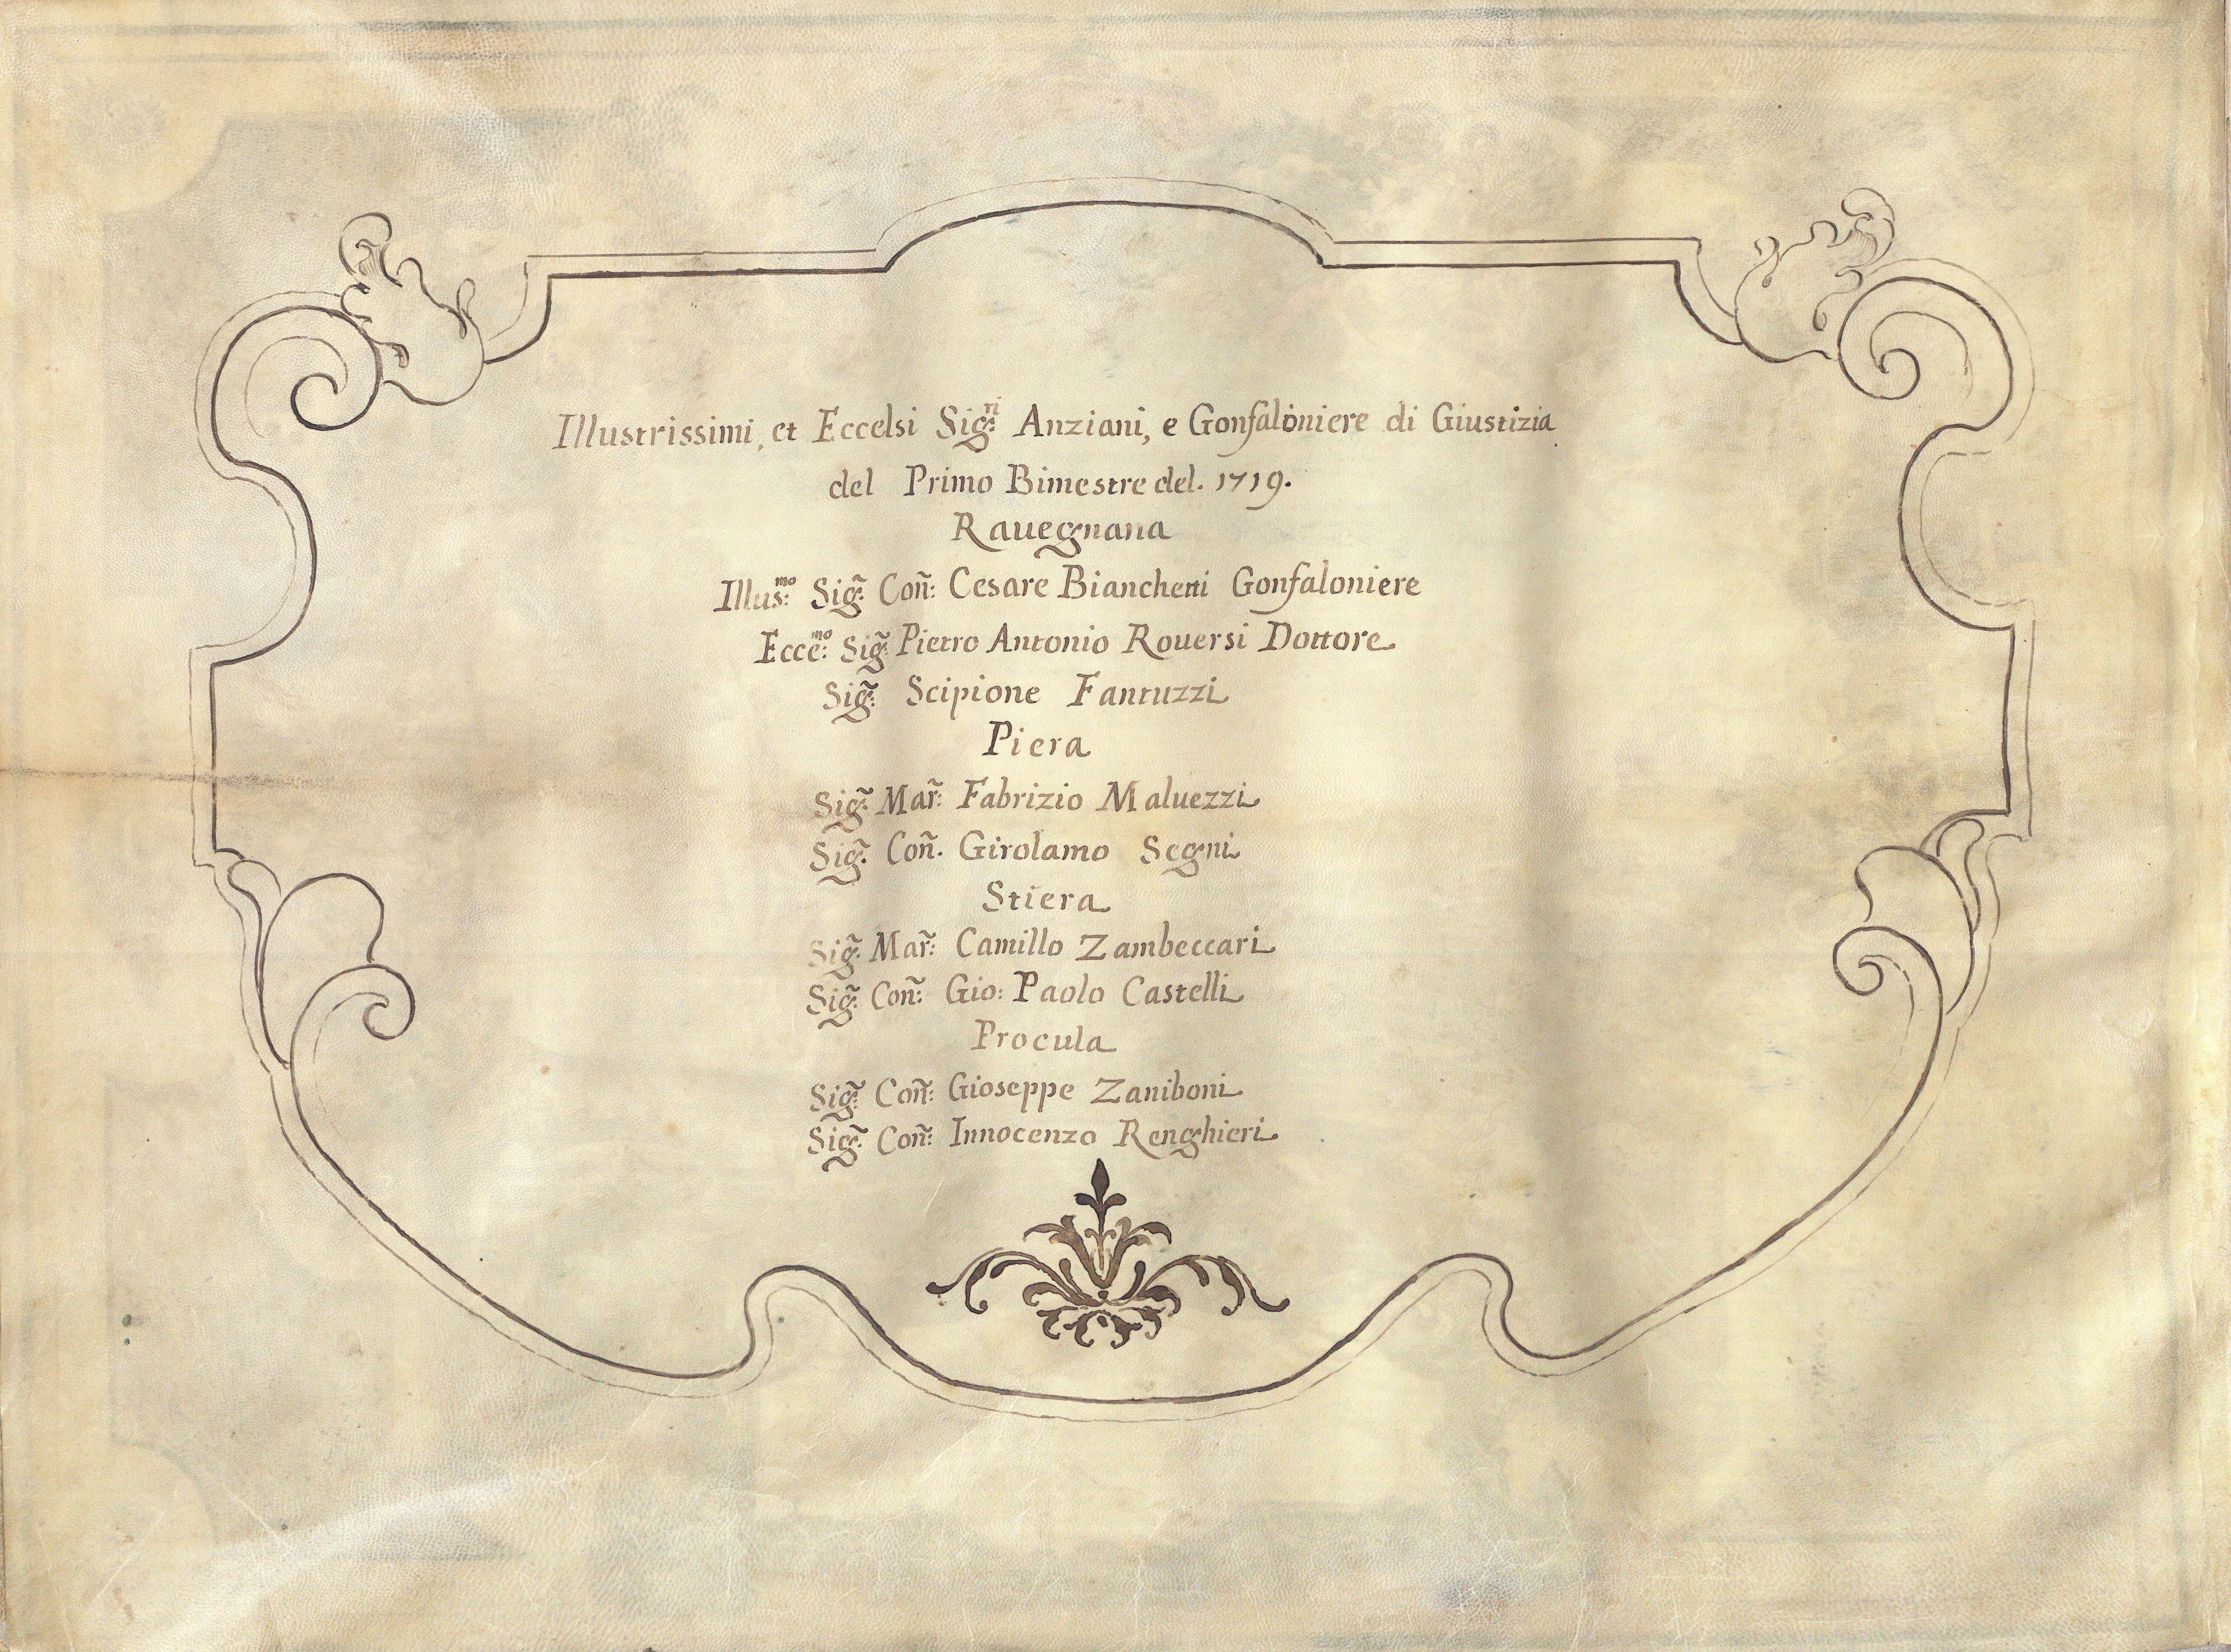 Illustrissimi, et Eccelsi Sig:ri Anziani, e Gonfaloniere di Giustizia
del Primo Bimestre del. 1719.
Rauegnana
Illus:mo Sig̃: Coñ: Cesare Bianchetti Gonfaloniere
Ecce:mo Sig̃: Pietro Antonio Rouersi Dottore
Sig̃: Scipione Fantuzzi
Piera
Sig̃: Mar̃: Fabrizio Maluezzi
Sig̃: Coñ. Girolamo Segni
Stiera
Sig̃: Mar̃: Camillo Zambeccari
Sig̃: Coñ: Gio: Paolo Castelli
Procula
Sig̃: Coñ: Gioseppe Zaniboni
Sig̃: Coñ: Innocenzo Renghieri